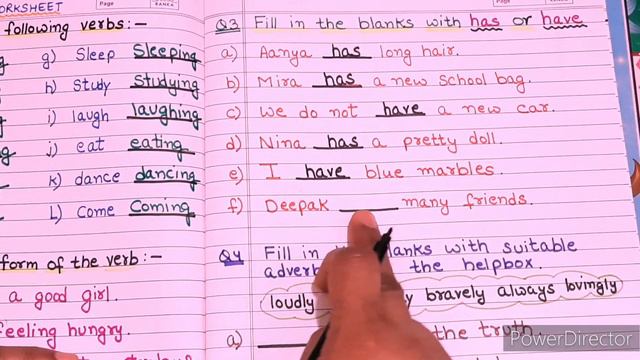 WORKSHEET
following verbs:-
g) Sleep Sleeping
h) Study Studying
i) laugh laughing
j) eat eating
k) dance dancing
L) Come Coming
form of the verb:-
a good girl.
feeling hungry.
Page
Q3 Fill in the blanks with has or have
a) Aanya has long hair.
b) Mira has a new school bag.
c) We do not have a new car.
d) Nina has a pretty doll.
e) I have blue marbles.
f) Deepak ______ many friends.
Q4 Fill in blanks with suitable
the helpbox.
loudly bravely always lovingly
a) ______ the truth.
Page
PowerDirector